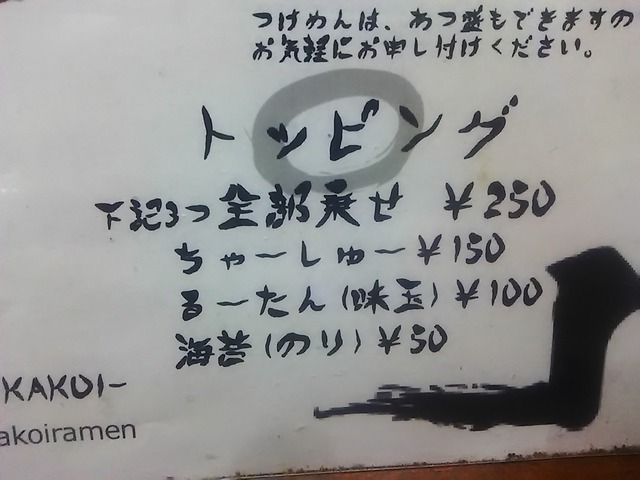 つけめんは、あつ盛もできますの
お気軽にお申し付けください。
トッピング
下記3つ全部乗せ ¥250
ちゃーしゅー¥150
るーたん(味玉)¥100
海苔(のり)¥50
KAKOI-
akoiramen